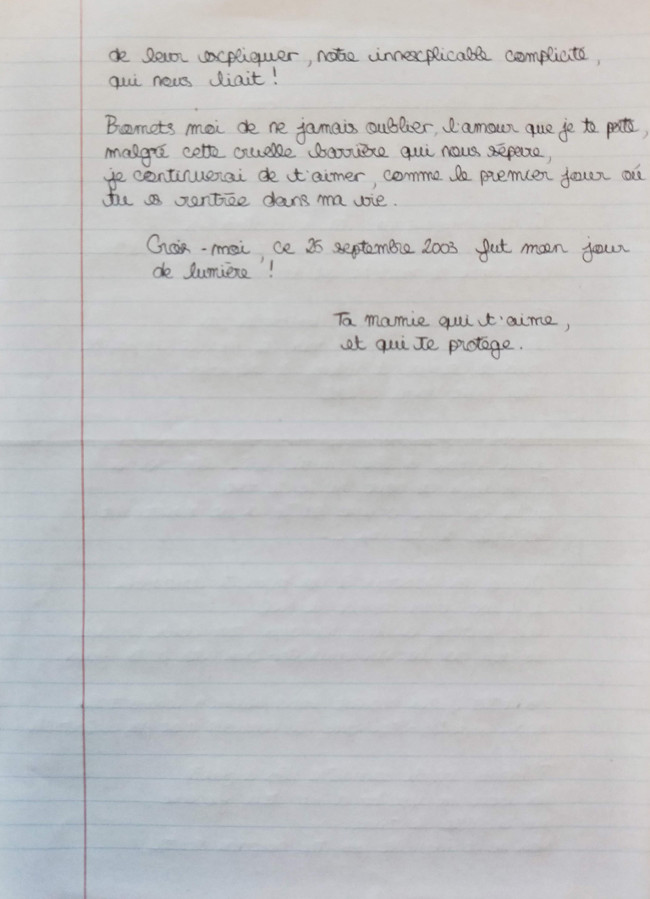 de leur expliquer, notre innexplicable complicité,
qui nous liait !
Promets moi de ne jamais oublier, l'amour que je te porte,
malgré cette cruelle barrière qui nous sépare,
je continuerai de t'aimer, comme le premier jour où
tu es rentrée dans ma vie.
Crois-moi, ce 25 septembre 2003 fut mon jour
de lumière !
Ta mamie qui t'aime,
et qui te protège.